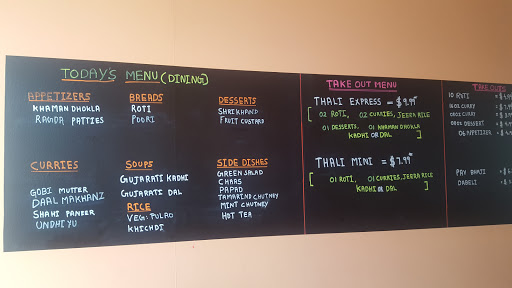 TODAY'S MENU (DINING)
APPETIZERS
KHAMAN DHOKLA
RAGDA PATTIES
BREADS
ROTI
POORI
DESSERTS
SHRIKHAND
FRUIT CUSTARD
CURRIES
GOBI MUTTER
DAAL MAKHANI
SHAHI PANEER
UNDHIYU
SOUPS
GUJARATI KADHI
GUJARATI DAL
RICE
VEG. PULAO
KHICHDI
SIDE DISHES
GREEN SALAD
CHAAS
PAPAD
TAMARIND CHUTNEY
MINT CHUTNEY
HOT TEA
TAKE OUT MENU
THALI EXPRESS = $9.99
[ 02 ROTI, 02 CURRIES, JEERA RICE
01 DESSERTS, 01 KHAMAN DHOKLA
KADHI OR DAL ]
THALI MINI = $7.99
[ 01 ROTI, 01 CURRIES, JEERA RICE
KADHI OR DAL ]
TAKE OUT
10 ROTI = $
16 OZ CURRY = $
08 OZ CURRY = $
08 OZ DESSERT = $
06 APPETIZER = $
PAV BHAJI = $
DABELI = $